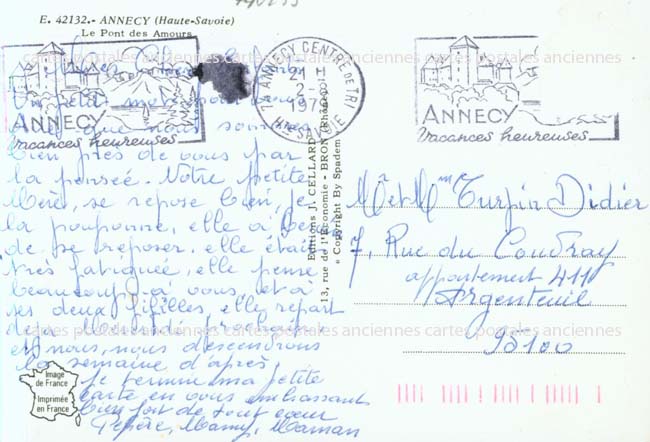 E. 42132.- ANNECY (Haute-Savoie)
Le Pont des Amours
ANNECY
Vacances heureuses
ANNECY CENTRE DE TRI
21 H
2-8
1979
Hte SAVOIE
ANNECY
Vacances heureuses
Un petit mot
que nous sommes
bien près de vous par
la pensée. Notre petite
Mère, se repose bien, je
la pouponne, elle a besoin
de se reposer. elle était
très fatiguée, elle pense
beaucoup à vous et à
ses deux fifilles, elle repart
et nous, nous descendrons
la semaine d'après,
Je termine ma petite
carte en vous embrassant
bien fort de tout cœur
Pépère, Mamy, Maman
Editions J. CELLARD
13, rue de l'Economie - BRON (Rhône)
© Copyright By Spadem
Mr et Mme Turpin Didier
7, Rue du Coudray
appartement 411
Argenteuil
95100
Image
de France
Imprimée
en France
cartes postales anciennes cartes postales anciennes cartes postales anciennes